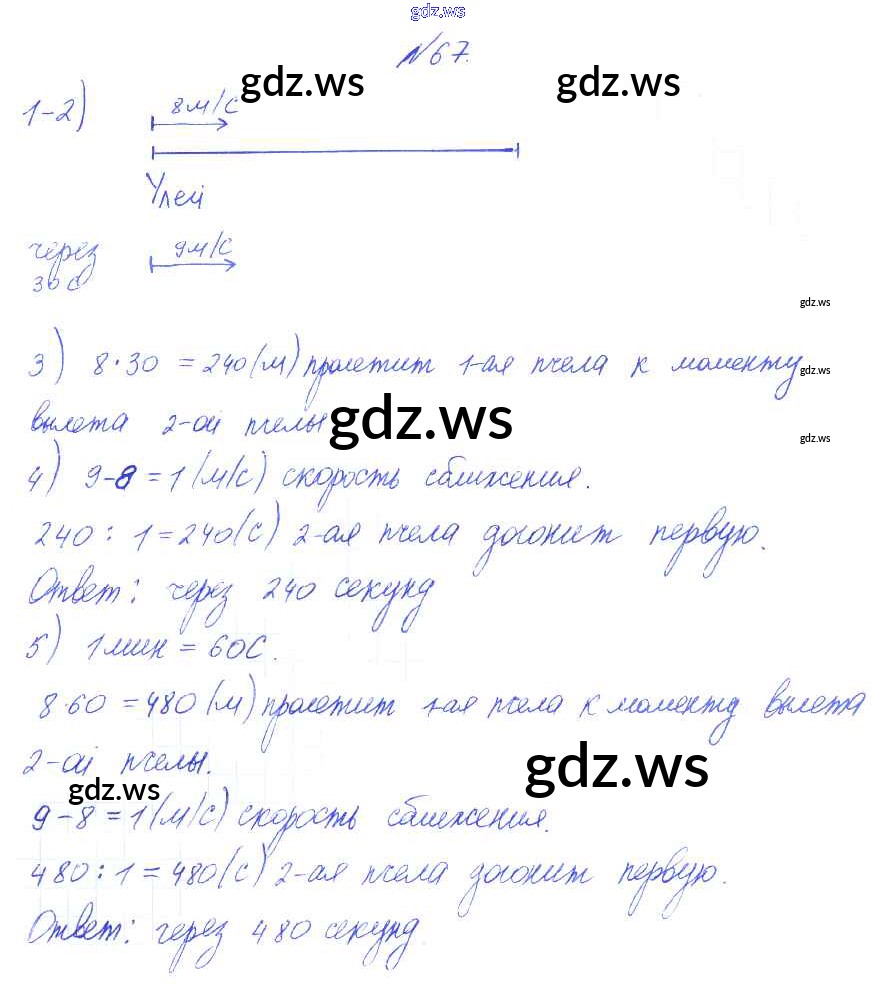 gdz.ws
№67.
gdz.ws gdz.ws
1-2) 8м/с
Улей
через 9м/с
30с
gdz.ws
3) 8·30 =240(м) пролетит 1-ая пчела к моменту
gdz.ws
вылета 2-ой пчелы
gdz.ws
gdz.ws
4) 9-8=1(м/с) скорость сближения.
240: 1=240(с) 2-ая пчела догонит первую.
Ответ: через 240 секунд
5) 1мин = 60с.
8·60 =480(м) пролетит 1-ая пчела к моменту вылета
2-ой пчелы.
gdz.ws
gdz.ws
9-8=1(м/с) скорость сближения.
480:1=480(с) 2-ая пчела догонит первую.
Ответ: через 480 секунд.